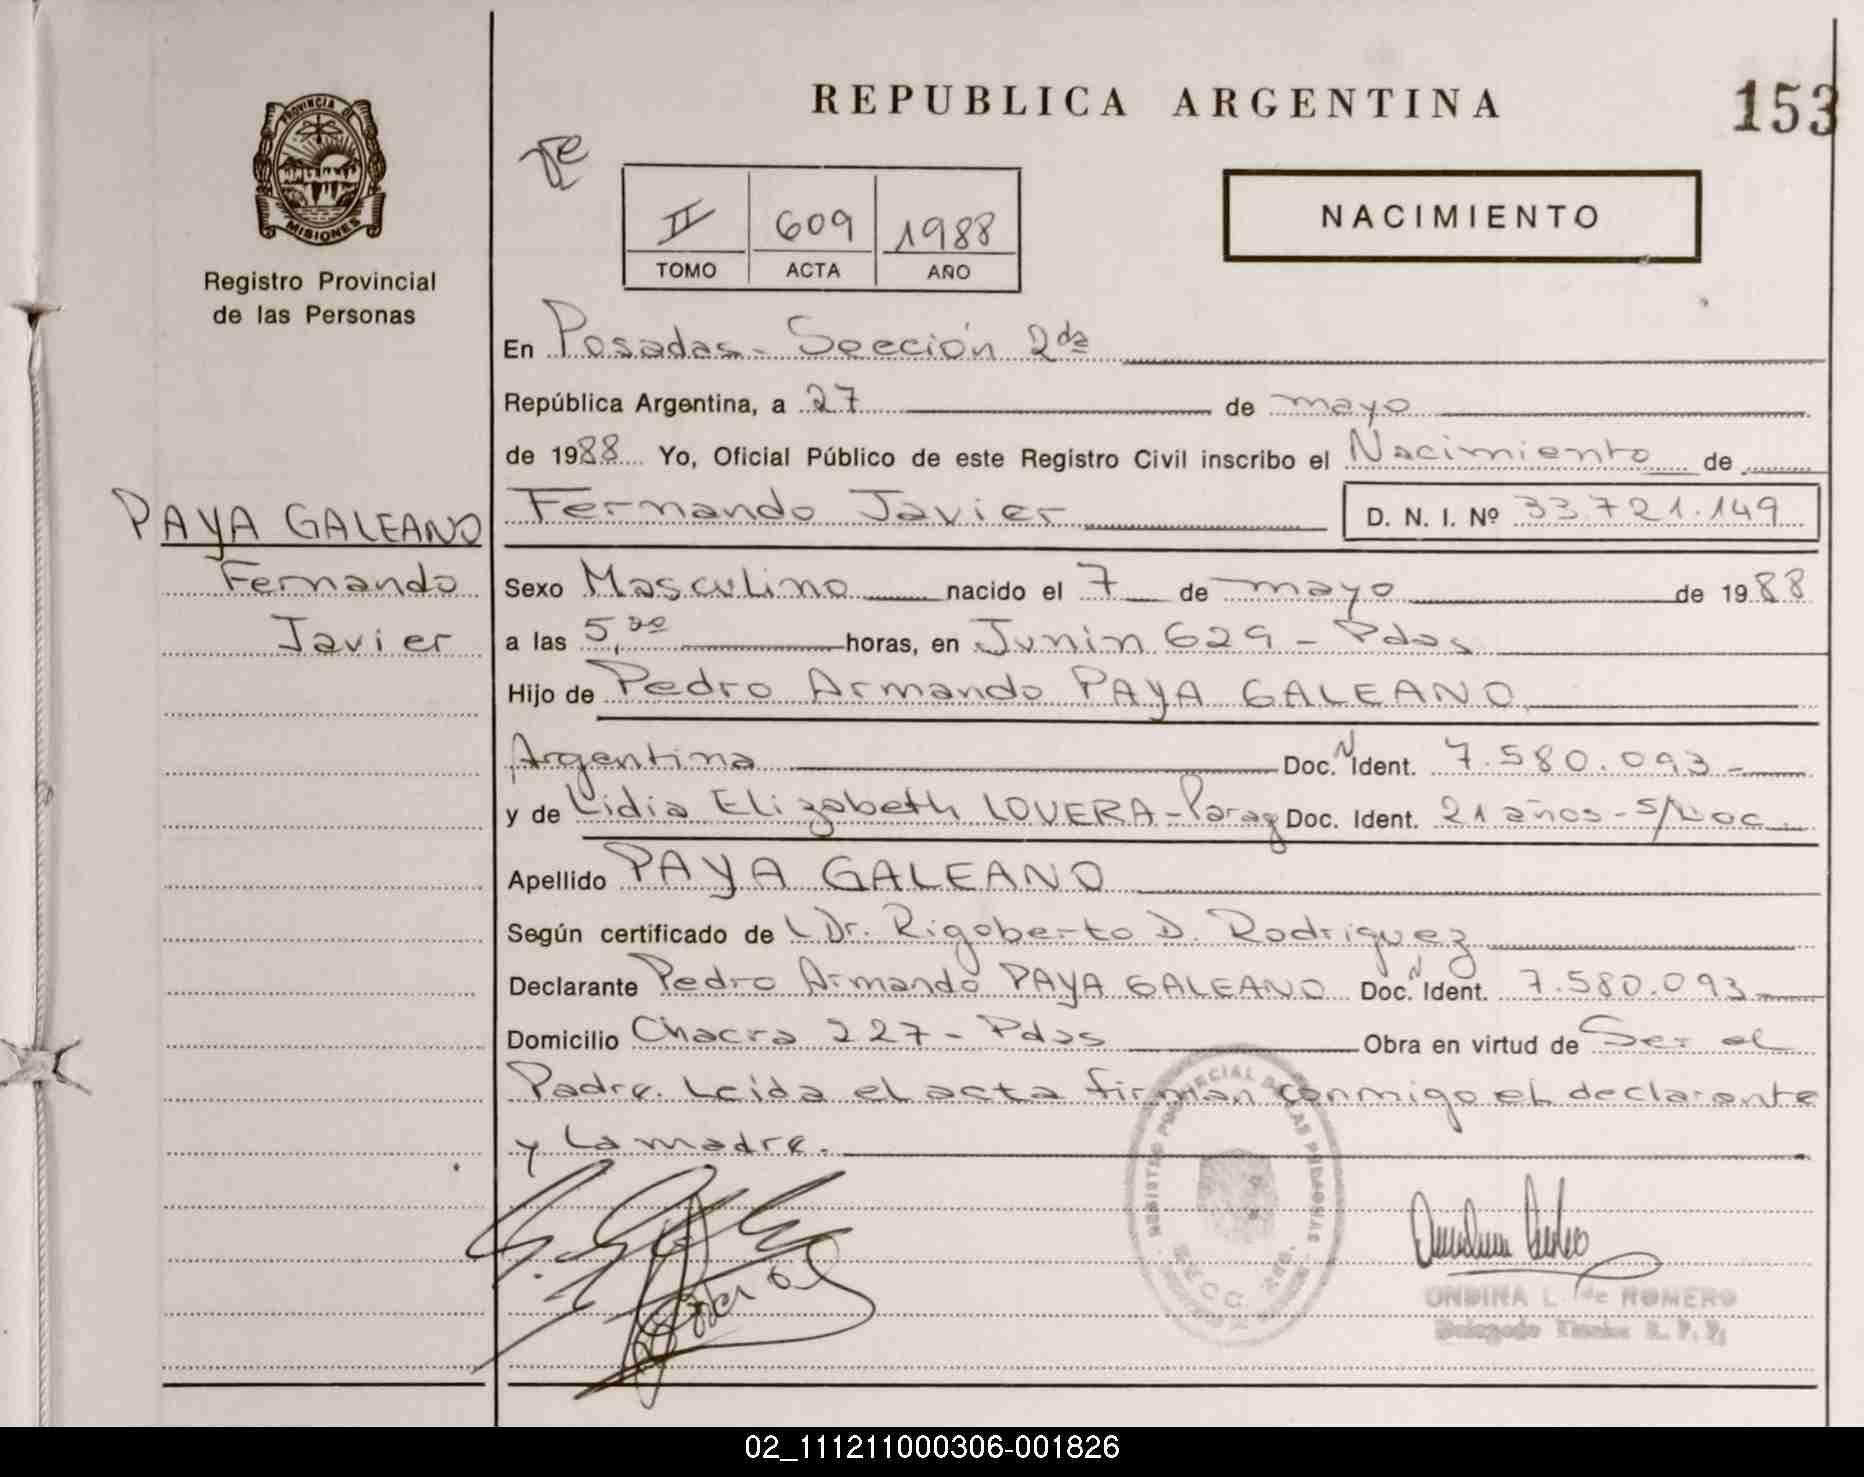 REPUBLICA ARGENTINA
153
PROVINCIA DE
MISIONES
Registro Provincial
de las Personas
II 609 1988
TOMO ACTA AÑO
NACIMIENTO
En Posadas - Sección 2da
República Argentina, a 27 de mayo
de 1988 Yo, Oficial Público de este Registro Civil inscribo el Nacimiento de
PAYA GALEANO
Fernando
Javier
Fernando Javier D. N. I. Nº 33.721.149
Sexo Masculino nacido el 7 de mayo de 1988
a las 5, horas, en Junin 629 - Pdas
Hijo de Pedro Armando PAYA GALEANO
Argentina Doc. N Ident. 7.580.093 -
y de Lidia Elizabeth LOVERA - Parag Doc. Ident. 21 años - s/Doc.
Apellido PAYA GALEANO
Según certificado de L Dr. Rigoberto D. Rodriguez
Declarante Pedro Armando PAYA GALEANO Doc. N Ident. 7.580.093 -
Domicilio Chacra 227 - Pdas Obra en virtud de Ser el
Padre. Leida el acta firman conmigo el declarante
y la madre.
REGISTRO PROVINCIAL DE LAS PERSONAS
SECC. 2da.
ONDINA L. de ROMERO
Delegado R. P. P.
02_111211000306-001826